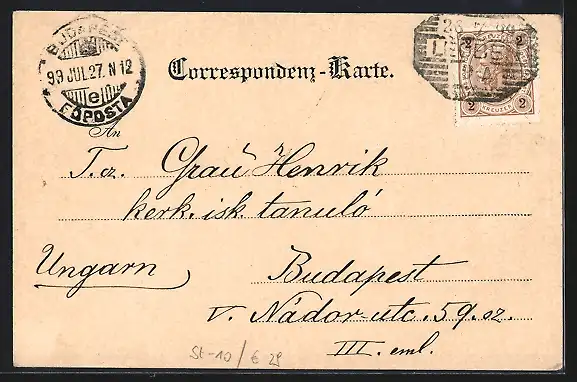 BUDAPEST
99 JUL. 27. N 12
e
FŐPOSTA
Correspondenz-Karte.
2 2
KREUZER
2 2
An
T. cz. Grau Henrik
kerk. isk. tanuló
Ungarn
Budapest
V. Nádor-utc. 59. sz.
III. eml.
St-10/€ 29